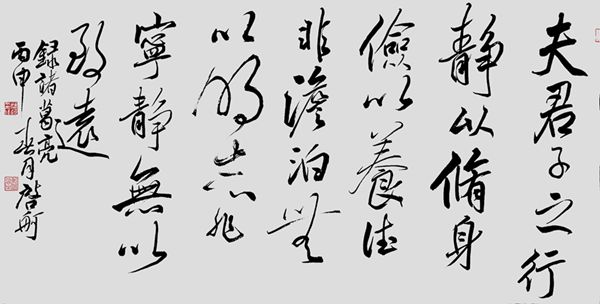 夫君子之行
静以脩身
儉以養德
非澹泊無
以明志非
寧静無以
致遠
録諸葛亮
丙申春月啓